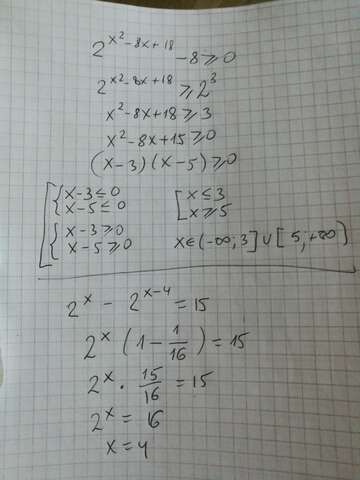 2^(x²-8x+18) - 8 ⩾ 0
2^(x²-8x+18) ⩾ 2³
x²-8x+18 ⩾ 3
x²-8x+15 ⩾ 0
(x-3)(x-5) ⩾ 0
[ { x-3 ≤ 0 [ x ≤ 3
x-5 ≤ 0 x ⩾ 5
{ x-3 ⩾ 0
x-5 ⩾ 0 x∈(-∞; 3] ∪ [5; +∞)
2^x - 2^(x-4) = 15
2^x (1 - 1/16) = 15
2^x · 15/16 = 15
2^x = 16
x = 4